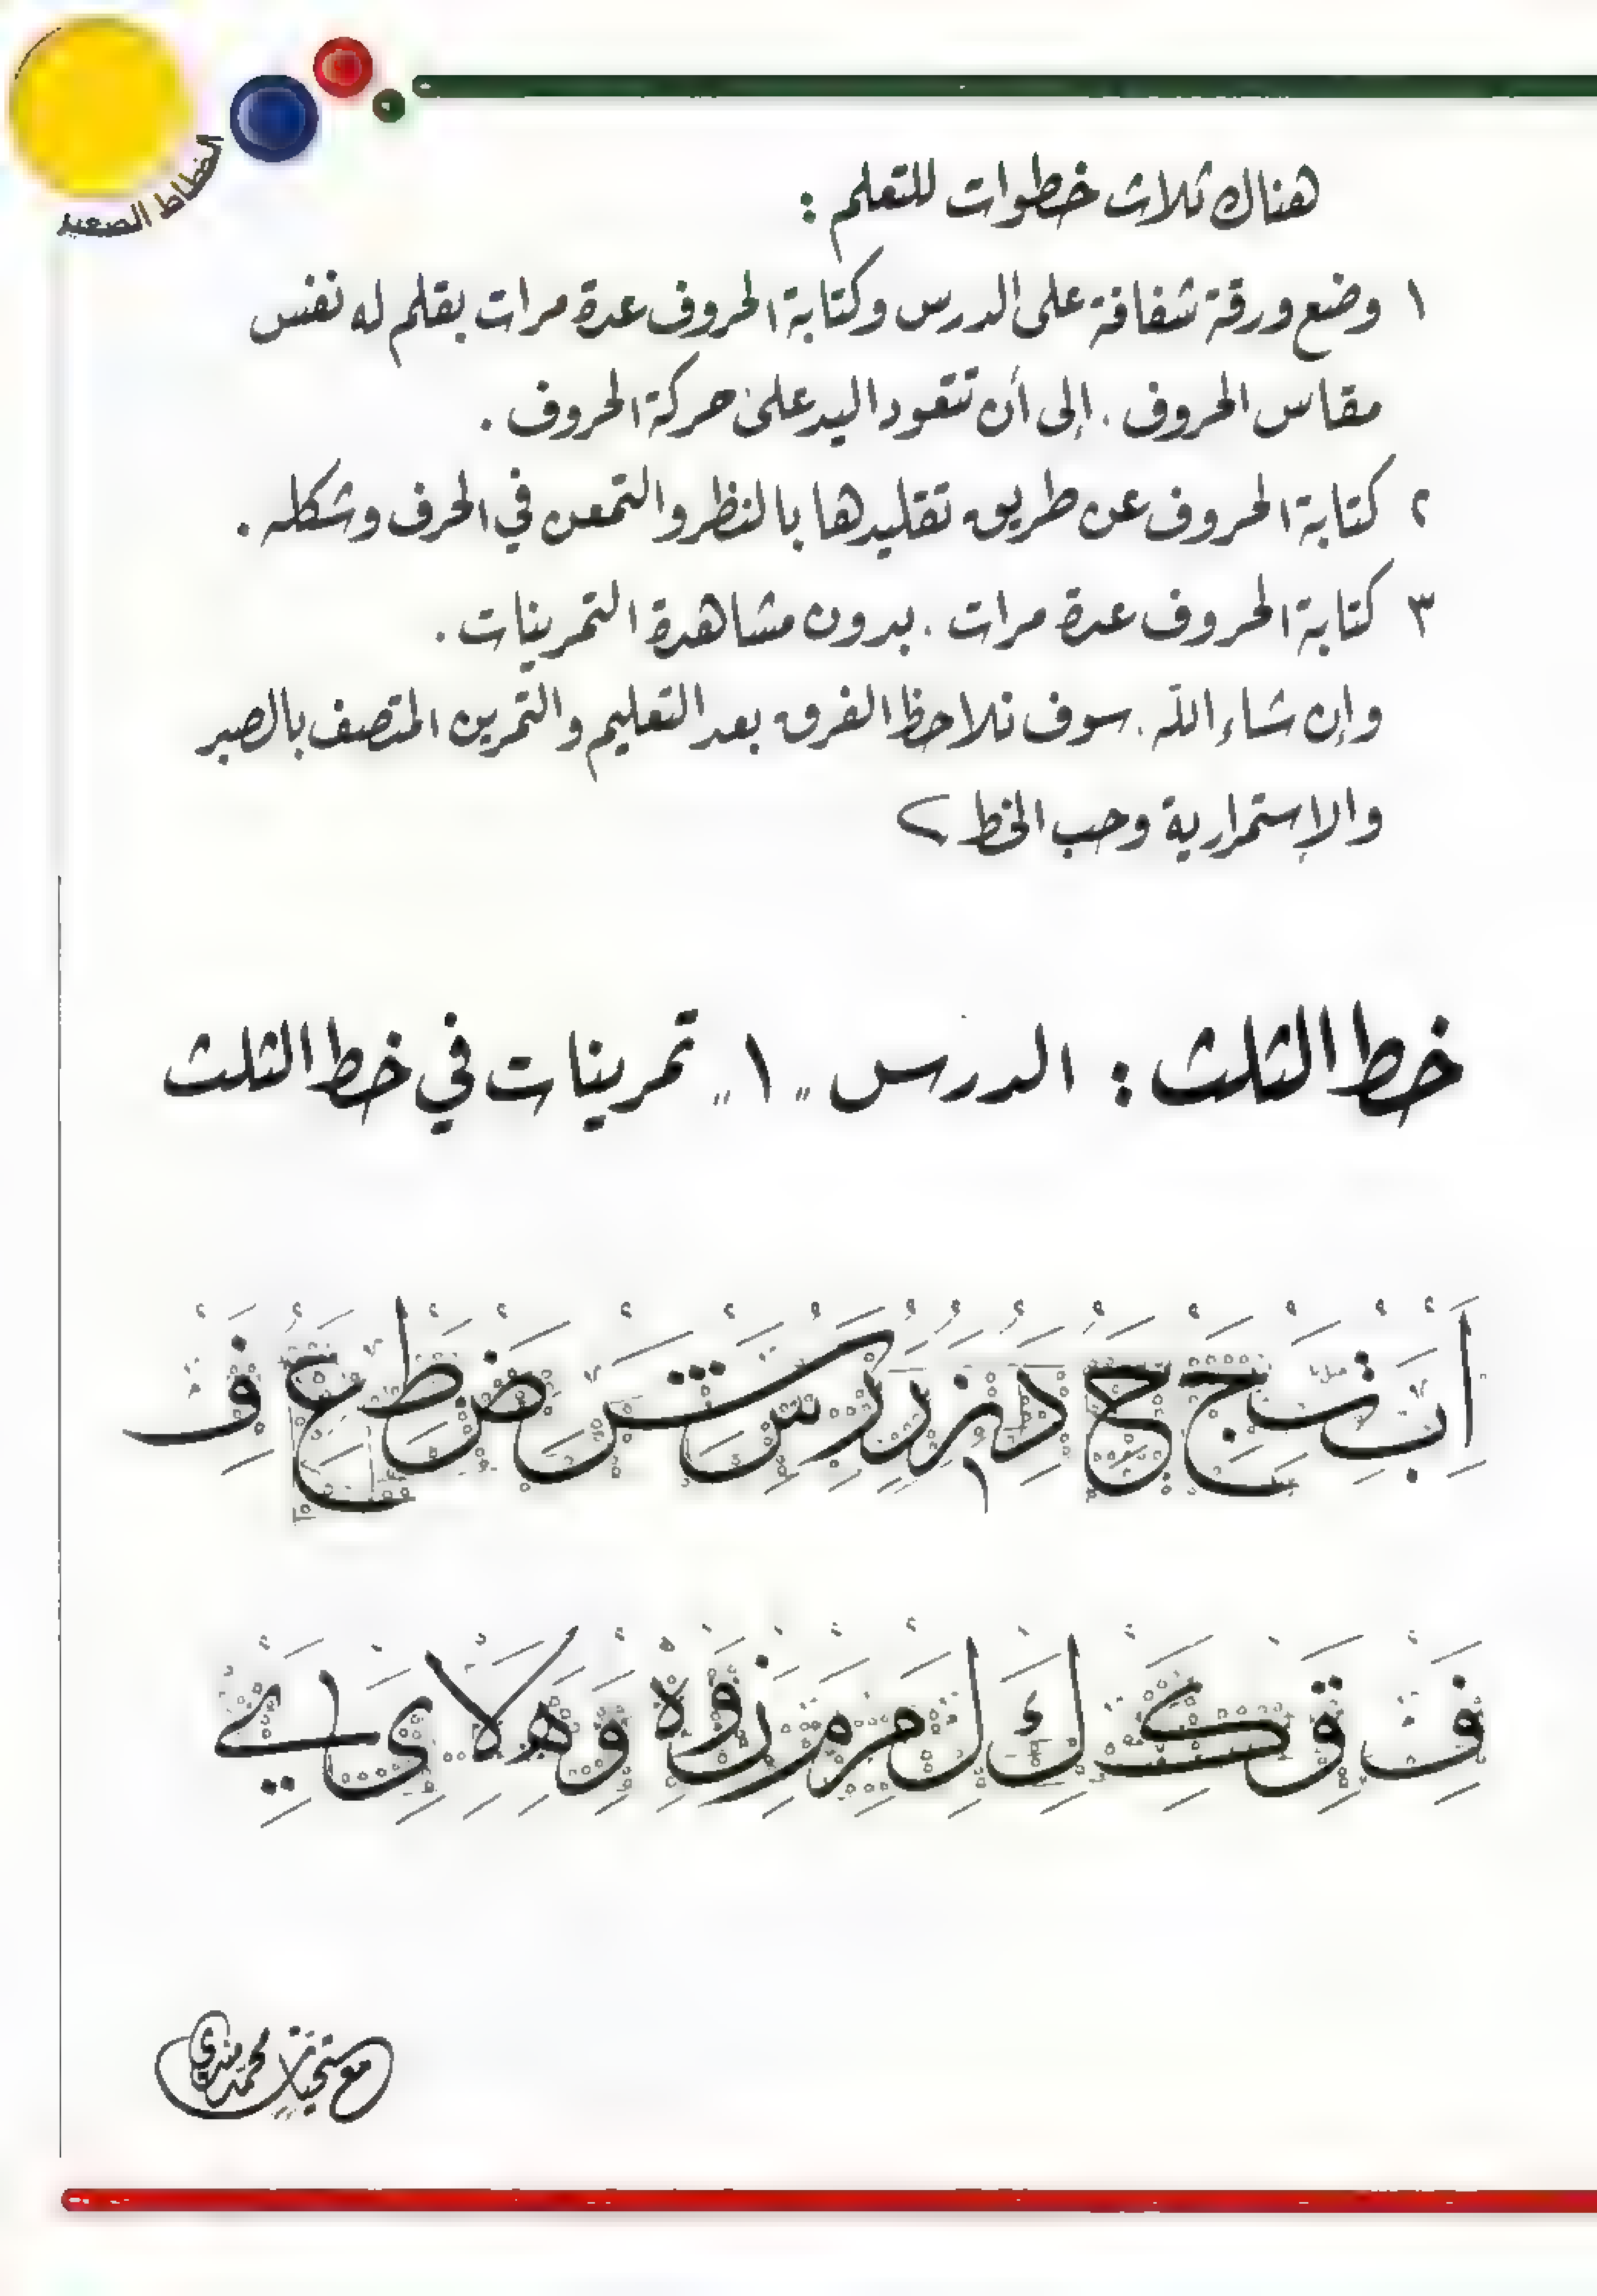 الخطاط الصغير
هناك ثلاث خطوات للتعلم :
١ وضع ورقة شفافة على الدرس وكتابة الحروف عدة مرات بقلم له نفس
مقاس الحروف . إلى أن تتعود اليد على حركة الحروف .
٢ كتابة الحروف عن طريق تقليدها بالنظر والتمعن في الحرف وشكله .
٣ كتابة الحروف عدة مرات . بدون مشاهدة التمرينات .
وإن شاء الله . سوف نلاحظ الفرق بعد التعليم والتمرين المتصف بالصبر
والإستمرارية وحب الخط
خط الثلث : الدرس "١" تمرينات في خط الثلث
مع تحيات محمد مندي